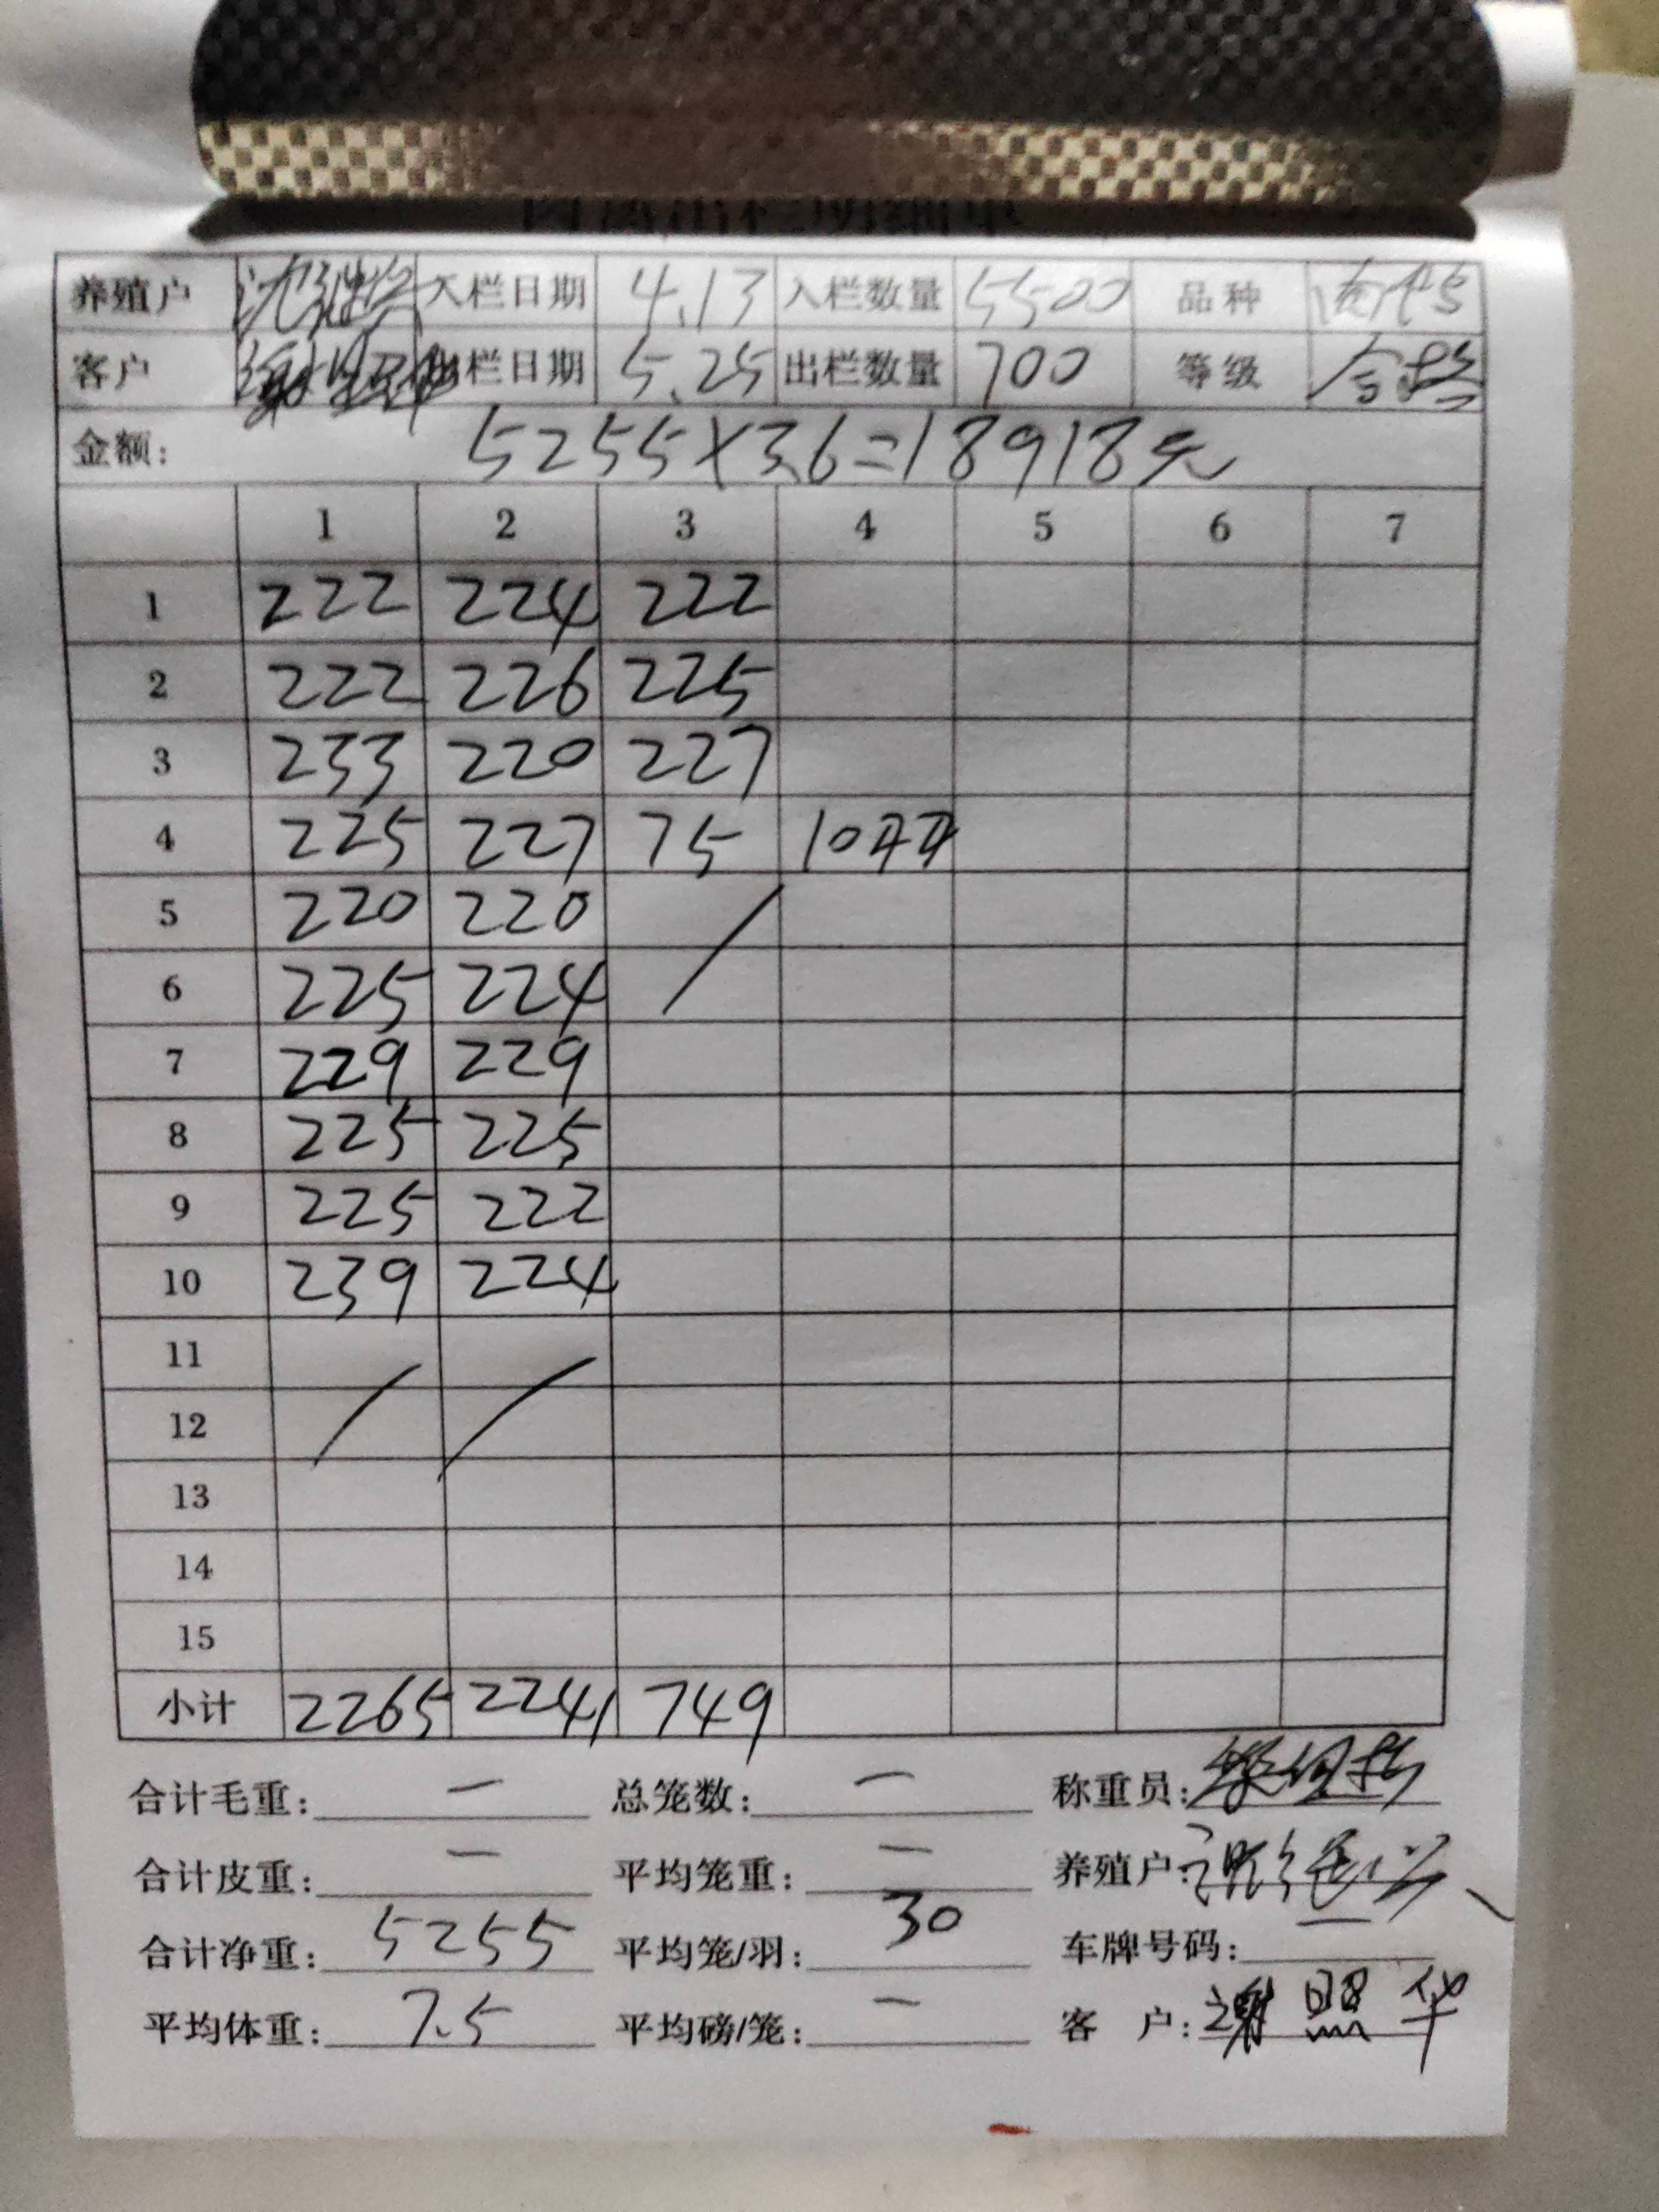 养殖户 入栏日期 4.13 入栏数量 5500 品种
客户 出栏日期 5.25 出栏数量 700 等级 合格
金额: 5255×3.6=18918元
1 2 3 4 5 6 7
1 222 224 222
2 222 226 225
3 233 220 227
4 225 227 75 10只
5 220 220
6 225 224
7 229 229
8 225 225
9 225 222
10 239 224
11
12
13
14
15
小计 2265 2241 749
合计毛重: — 总笼数: — 称重员:
合计皮重: — 平均笼重: — 养殖户:
合计净重: 5255 平均笼/羽: 30 车牌号码: —
平均体重: 7.5 平均磅/笼: — 客 户: 谢照华